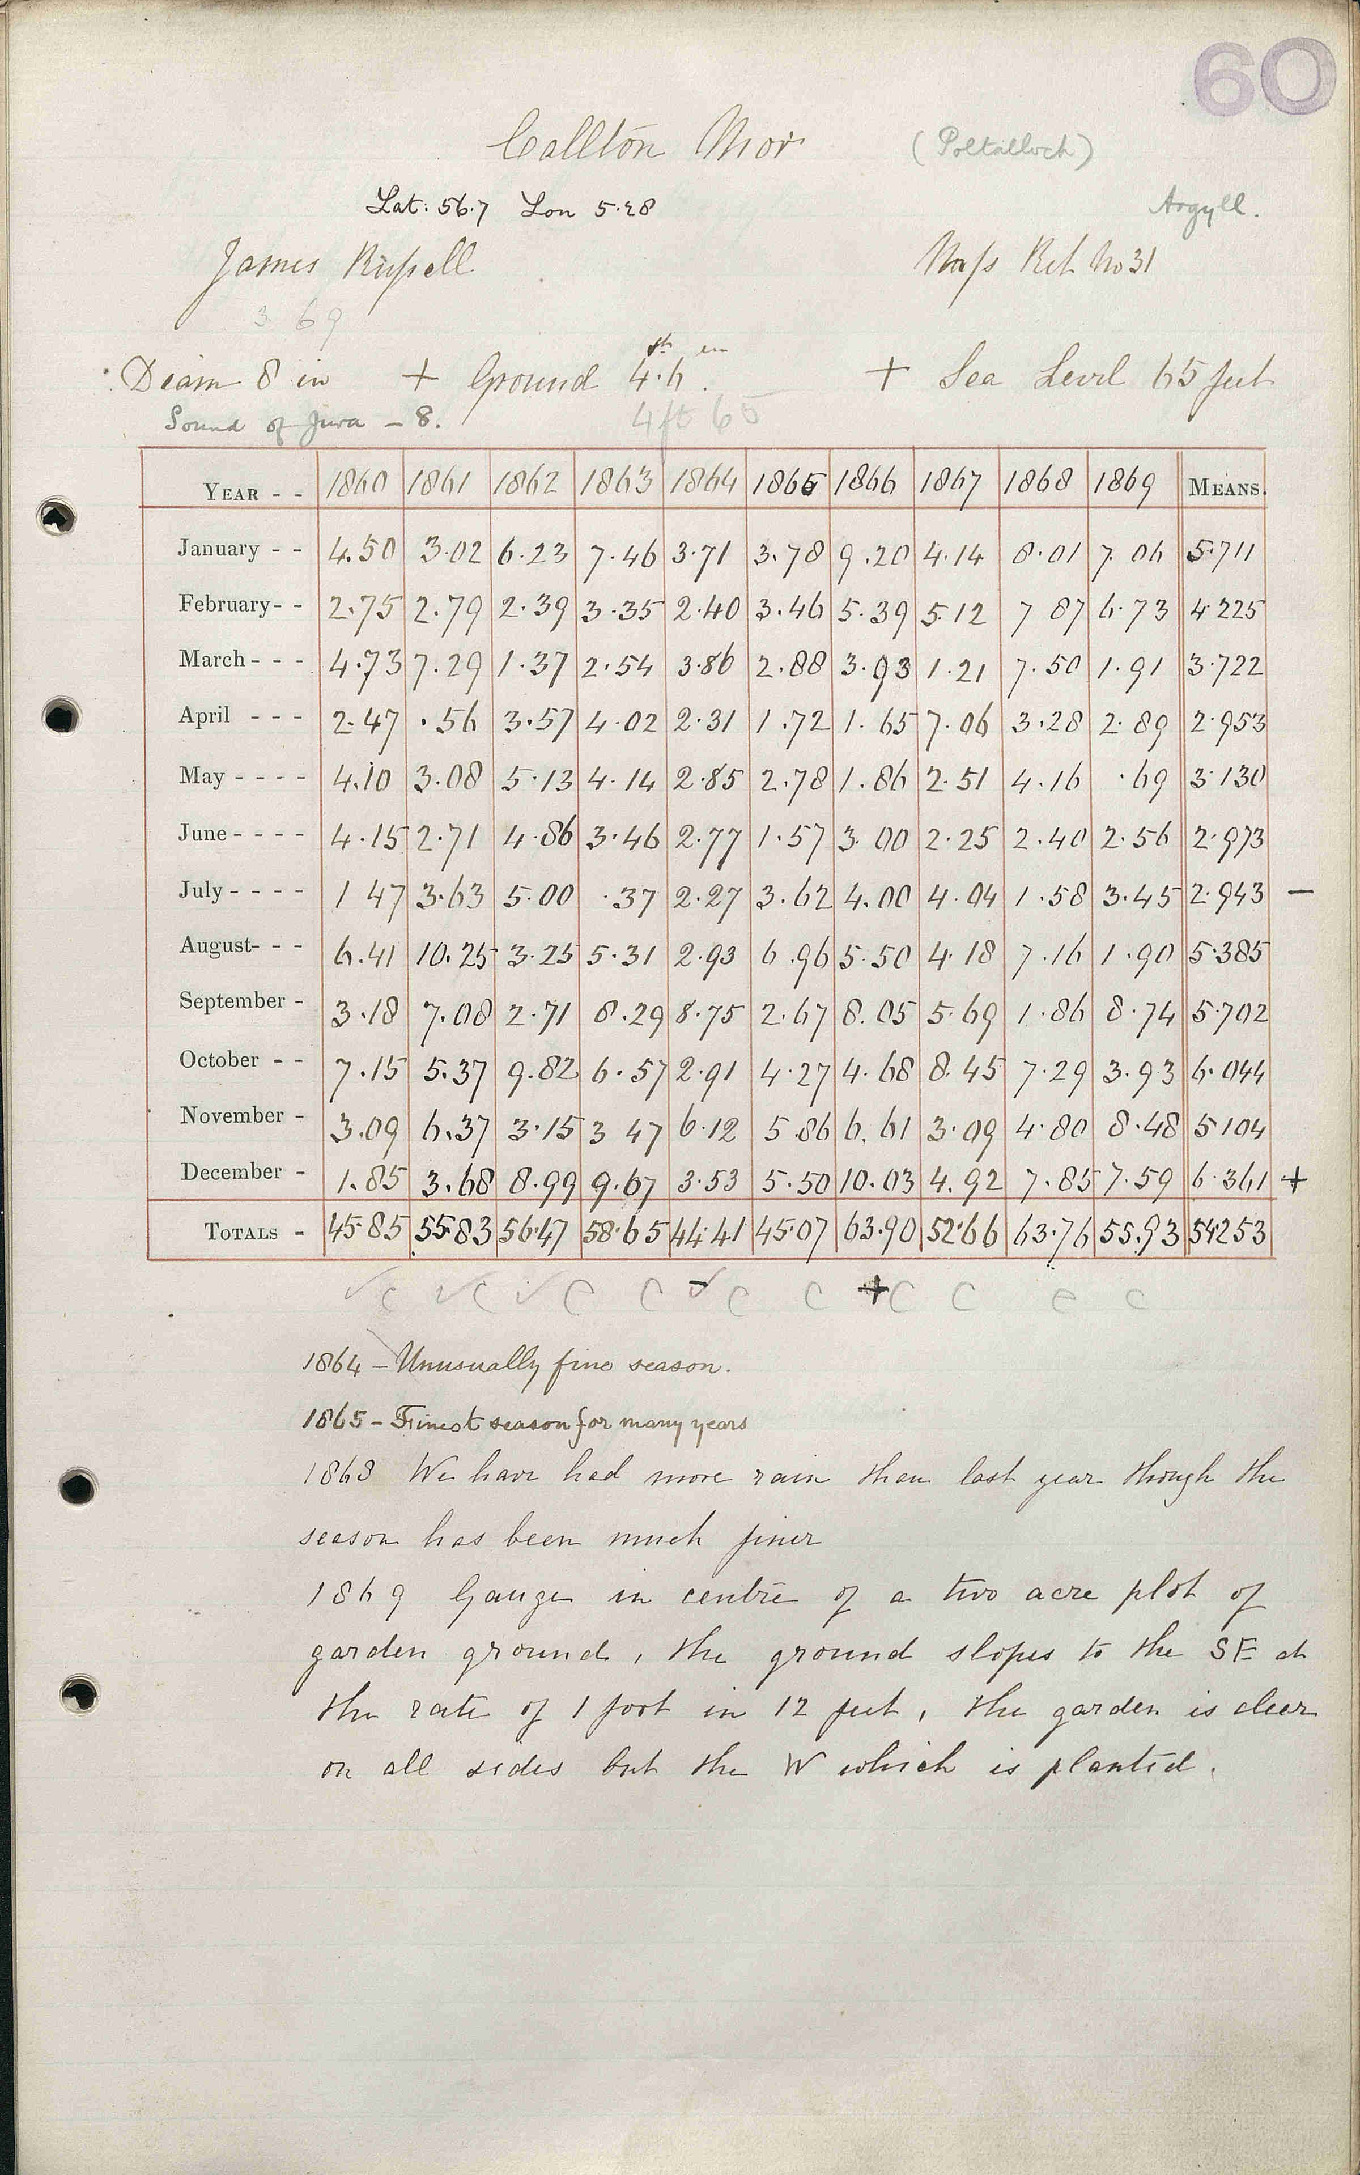 60
Callton Mor (Poltalloch)
Lat: 56.7 Lon 5.28 Argyll.
James Russell Ref No 31
3 69
Diam 8 in + Ground 4.6 in + Sea Level 65 feet
Sound of Jura - 8. 4ft 65
YEAR - - 1860 1861 1862 1863 1864 1865 1866 1867 1868 1869 MEANS.
January - - 4.50 3.02 6.23 7.46 3.71 3.78 9.20 4.14 8.01 7.06 5.711
February - - 2.75 2.79 2.39 3.35 2.40 3.46 5.39 5.12 7 87 6.73 4.225
March - - - 4.73 7.29 1.37 2.54 3.86 2.88 3.93 1.21 7.50 1.91 3.722
April - - - 2.47 .56 3.57 4.02 2.31 1.72 1.65 7.06 3.28 2.89 2.953
May - - - - 4.10 3.08 5.13 4.14 2.85 2.78 1.86 2.51 4.16 .69 3.130
June - - - - 4.15 2.71 4.86 3.46 2.77 1.57 3.00 2.25 2.40 2.56 2.973
July - - - - 1 47 3.63 5.00 .37 2.27 3.62 4.00 4.04 1.58 3.45 2.943 —
August - - - 6.41 10.25 3.25 5.31 2.93 6.96 5.50 4.18 7.16 1.90 5.385
September - 3.18 7.08 2.71 8.29 8.75 2.67 8.05 5.69 1.86 8.74 5.702
October - - 7.15 5.37 9.82 6.57 2.91 4.27 4.68 8.45 7.29 3.93 6.044
November - 3.09 6.37 3.15 3 47 6.12 5.86 6.61 3.09 4.80 8.48 5.104
December - 1.85 3.68 8.99 9.67 3.53 5.50 10.03 4.92 7.85 7.59 6.361 +
TOTALS - 45.85 55.83 56.47 58.65 44.41 45.07 63.90 52.66 63.76 55.93 54.253
✓c ✓c ✓c c - ✓c c + c c c c
1864 - Unusually fine season.
1865 - Finest season for many years
1868 We have had more rain than last year though the
season has been much finer
1869 Gauge in centre of a two acre plot of
garden ground, the ground slopes to the SE at
the rate of 1 foot in 12 feet, the garden is clear
on all sides but the W which is planted.